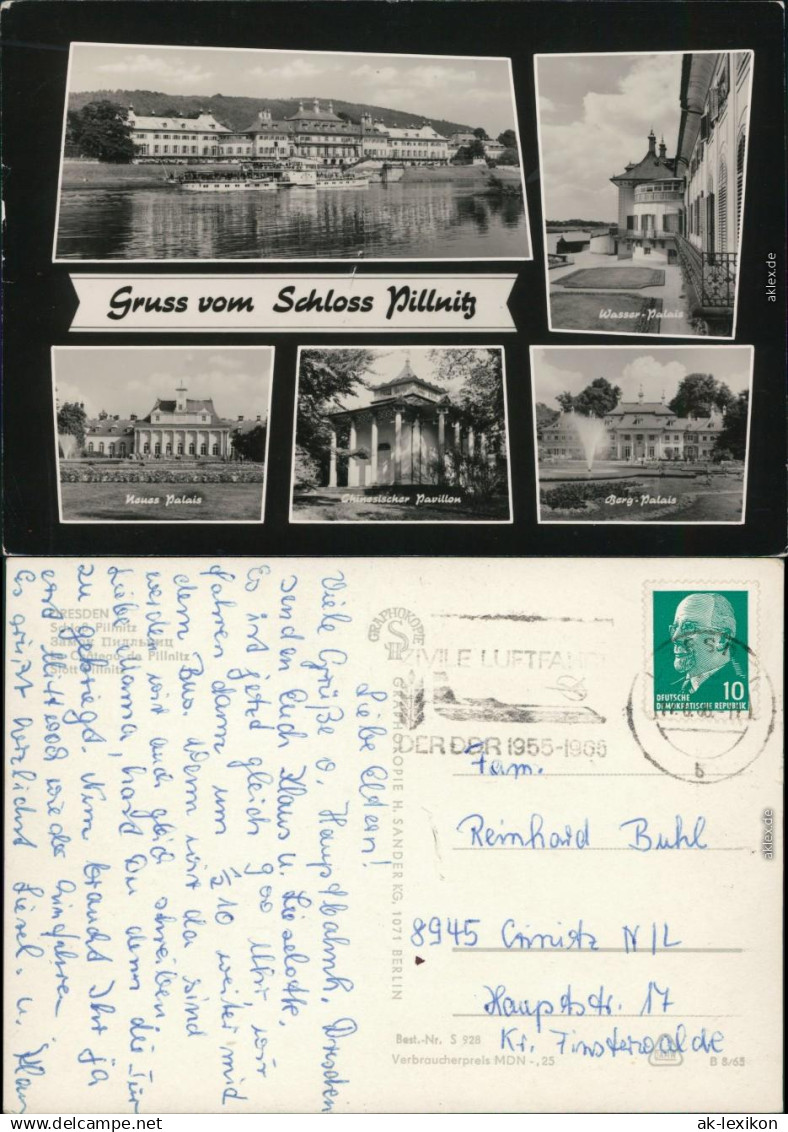 Gruss vom Schloss Pillnitz
Wasser-Palais
Neues Palais
Chinesischer Pavillon
Berg-Palais
aklex.de
DRESDEN
Schloß Pillnitz
Замок Пильниц
Le Château de Pillnitz
Slott Pillnitz
Liebe Eltern!
Viele Grüße v. Hauptbahnh. Dresden
senden Euch Klaus u. Lieselotte.
Es ist jetzt gleich 900 Uhr wir
fahren dann um ½10 weiter mid
dem Bus. Wenn wir da sind
werden wir auch gleich schreiben
Liebe Mama, hast Du denn die Tür
zu gekriegt. Nun braucht Ihr ja
erst Mittwoch wieder
Es grüßt herzlichst Liesel. u. Klau
GRAPHOKOPIE
GRAPHOKOPIE H. SANDER KG, 1071 BERLIN
ZIVILE LUFTFAHRT
DER DDR 1955-1965
DEUTSCHE
DEMOKRATISCHE REPUBLIK
10
b
Fam.
Reinhard Buhl
8945 Crinitz N/L
Hauptstr. 17
Kr. Finsterwalde
Best.-Nr. S 928
Verbraucherpreis MDN -,25
B 8/65
aklex.de
ak-lexikon
© ak-lexikon.de